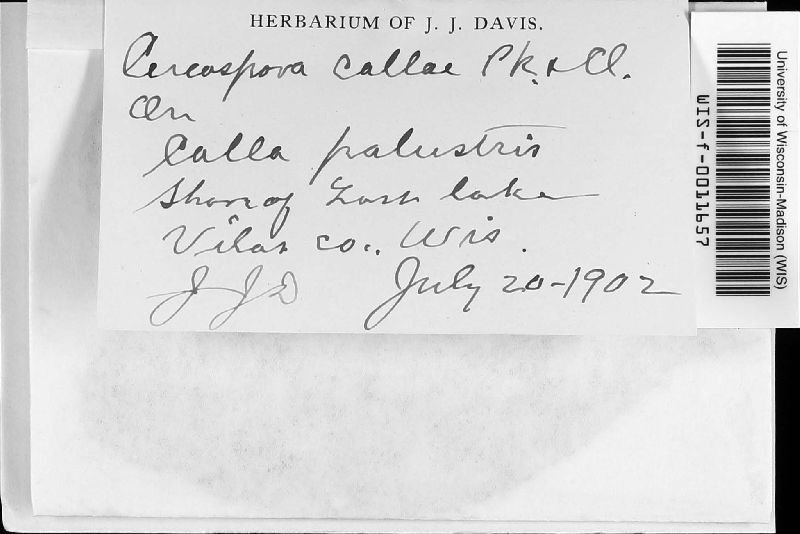 HERBARIUM OF J. J. DAVIS.
Cercospora callae Pk. & Cl.
On
Calla palustris
Shore of Lost lake
Vilas co., Wis.
J J D July 20-1902
University of Wisconsin-Madison (WIS)
WIS-f-0011657